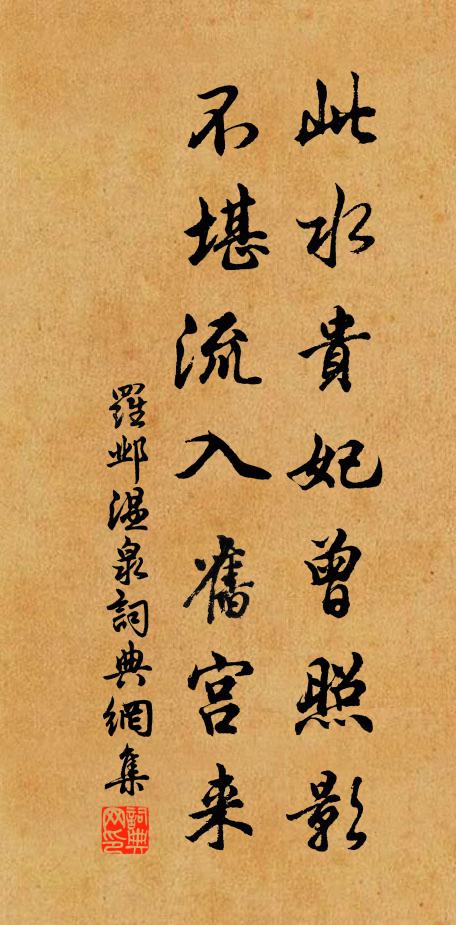 此水貴妃曾照影
不堪流入舊宫来
羅邺温泉詞典網集
詞典网印